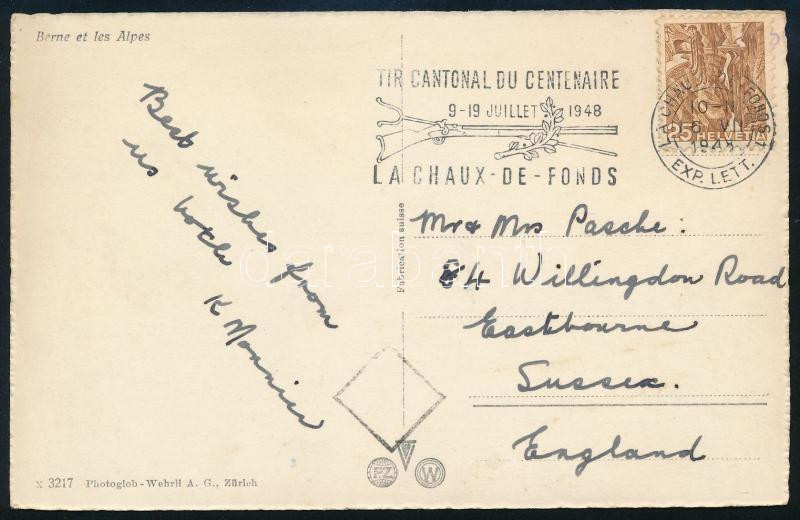 Berne et les Alpes
TIR CANTONAL DU CENTENAIRE
9-19 JUILLET 1948
LA CHAUX-DE-FONDS
25 HELVETIA
LA CHAUX-DE-FONDS 1
10-11
1948
EXP. LETT.
Best wishes from
us both
K Monnier
Fabrication suisse
Mr & Mrs Pasche:
84 Willingdon Road
Eastbourne
Sussex.
England
darabanth
x 3217 Photoglob-Wehrli A. G., Zürich
PZ
W